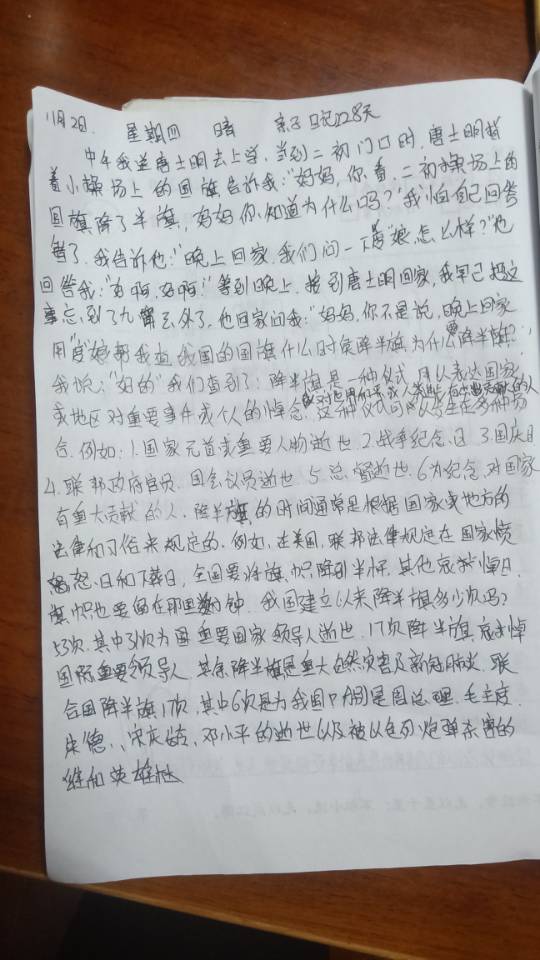 11月2日. 星期四 晴 亲子日记128天
中午我送唐士明去上学,当到二初门口时,唐士明指
着小操场上的国旗告诉我:"妈妈,你看,二初操场上的
国旗降了半旗,妈妈你知道为什么吗?"我怕自己回答
错了.我告诉他:"晚上回家,我们问一下度"娘,怎么样?"他
回答我:"好啊,好啊!"等到晚上,接到唐士明回家,我早已把这
事忘到了九霄云外了.他回家问我:"妈妈,你不是说,晚上回家
用"度"娘帮我查我国的国旗什么时候降半旗,为什么要降半旗?
我说:"好的"我们查到了:降半旗是一种仪式,用以表达国家
或地区对重要事件或个人的悼念.这种仪式可以发生在多种场
合.例如:1.国家元首或重要人物逝世 2.战争纪念日 3.国庆日
4.联邦政府官员、国会议员逝世 5.总督逝世.6.为纪念对国家
有重大贡献的人.降半旗的时间通常是根据国家或地方的
法律和习俗来规定的.例如,在美国,联邦法律规定在国家愤
怒日和下葬日,全国要将旗帜降到半杯.其他哀悼日,
旗帜也要留在那里数分钟.我国建立以来降半旗多少次吗?
53次.其中31次为国重要国家领导人逝世,17次降半旗哀悼
国际重要领导人 其余降半旗是重大自然灾害及新冠肺炎.联
合国降半旗17次,其中6次是为我国分别是周总理、毛主席、
朱德、宋庆龄、邓小平的逝世以及被以色列炮弹杀害的
维和英雄杜